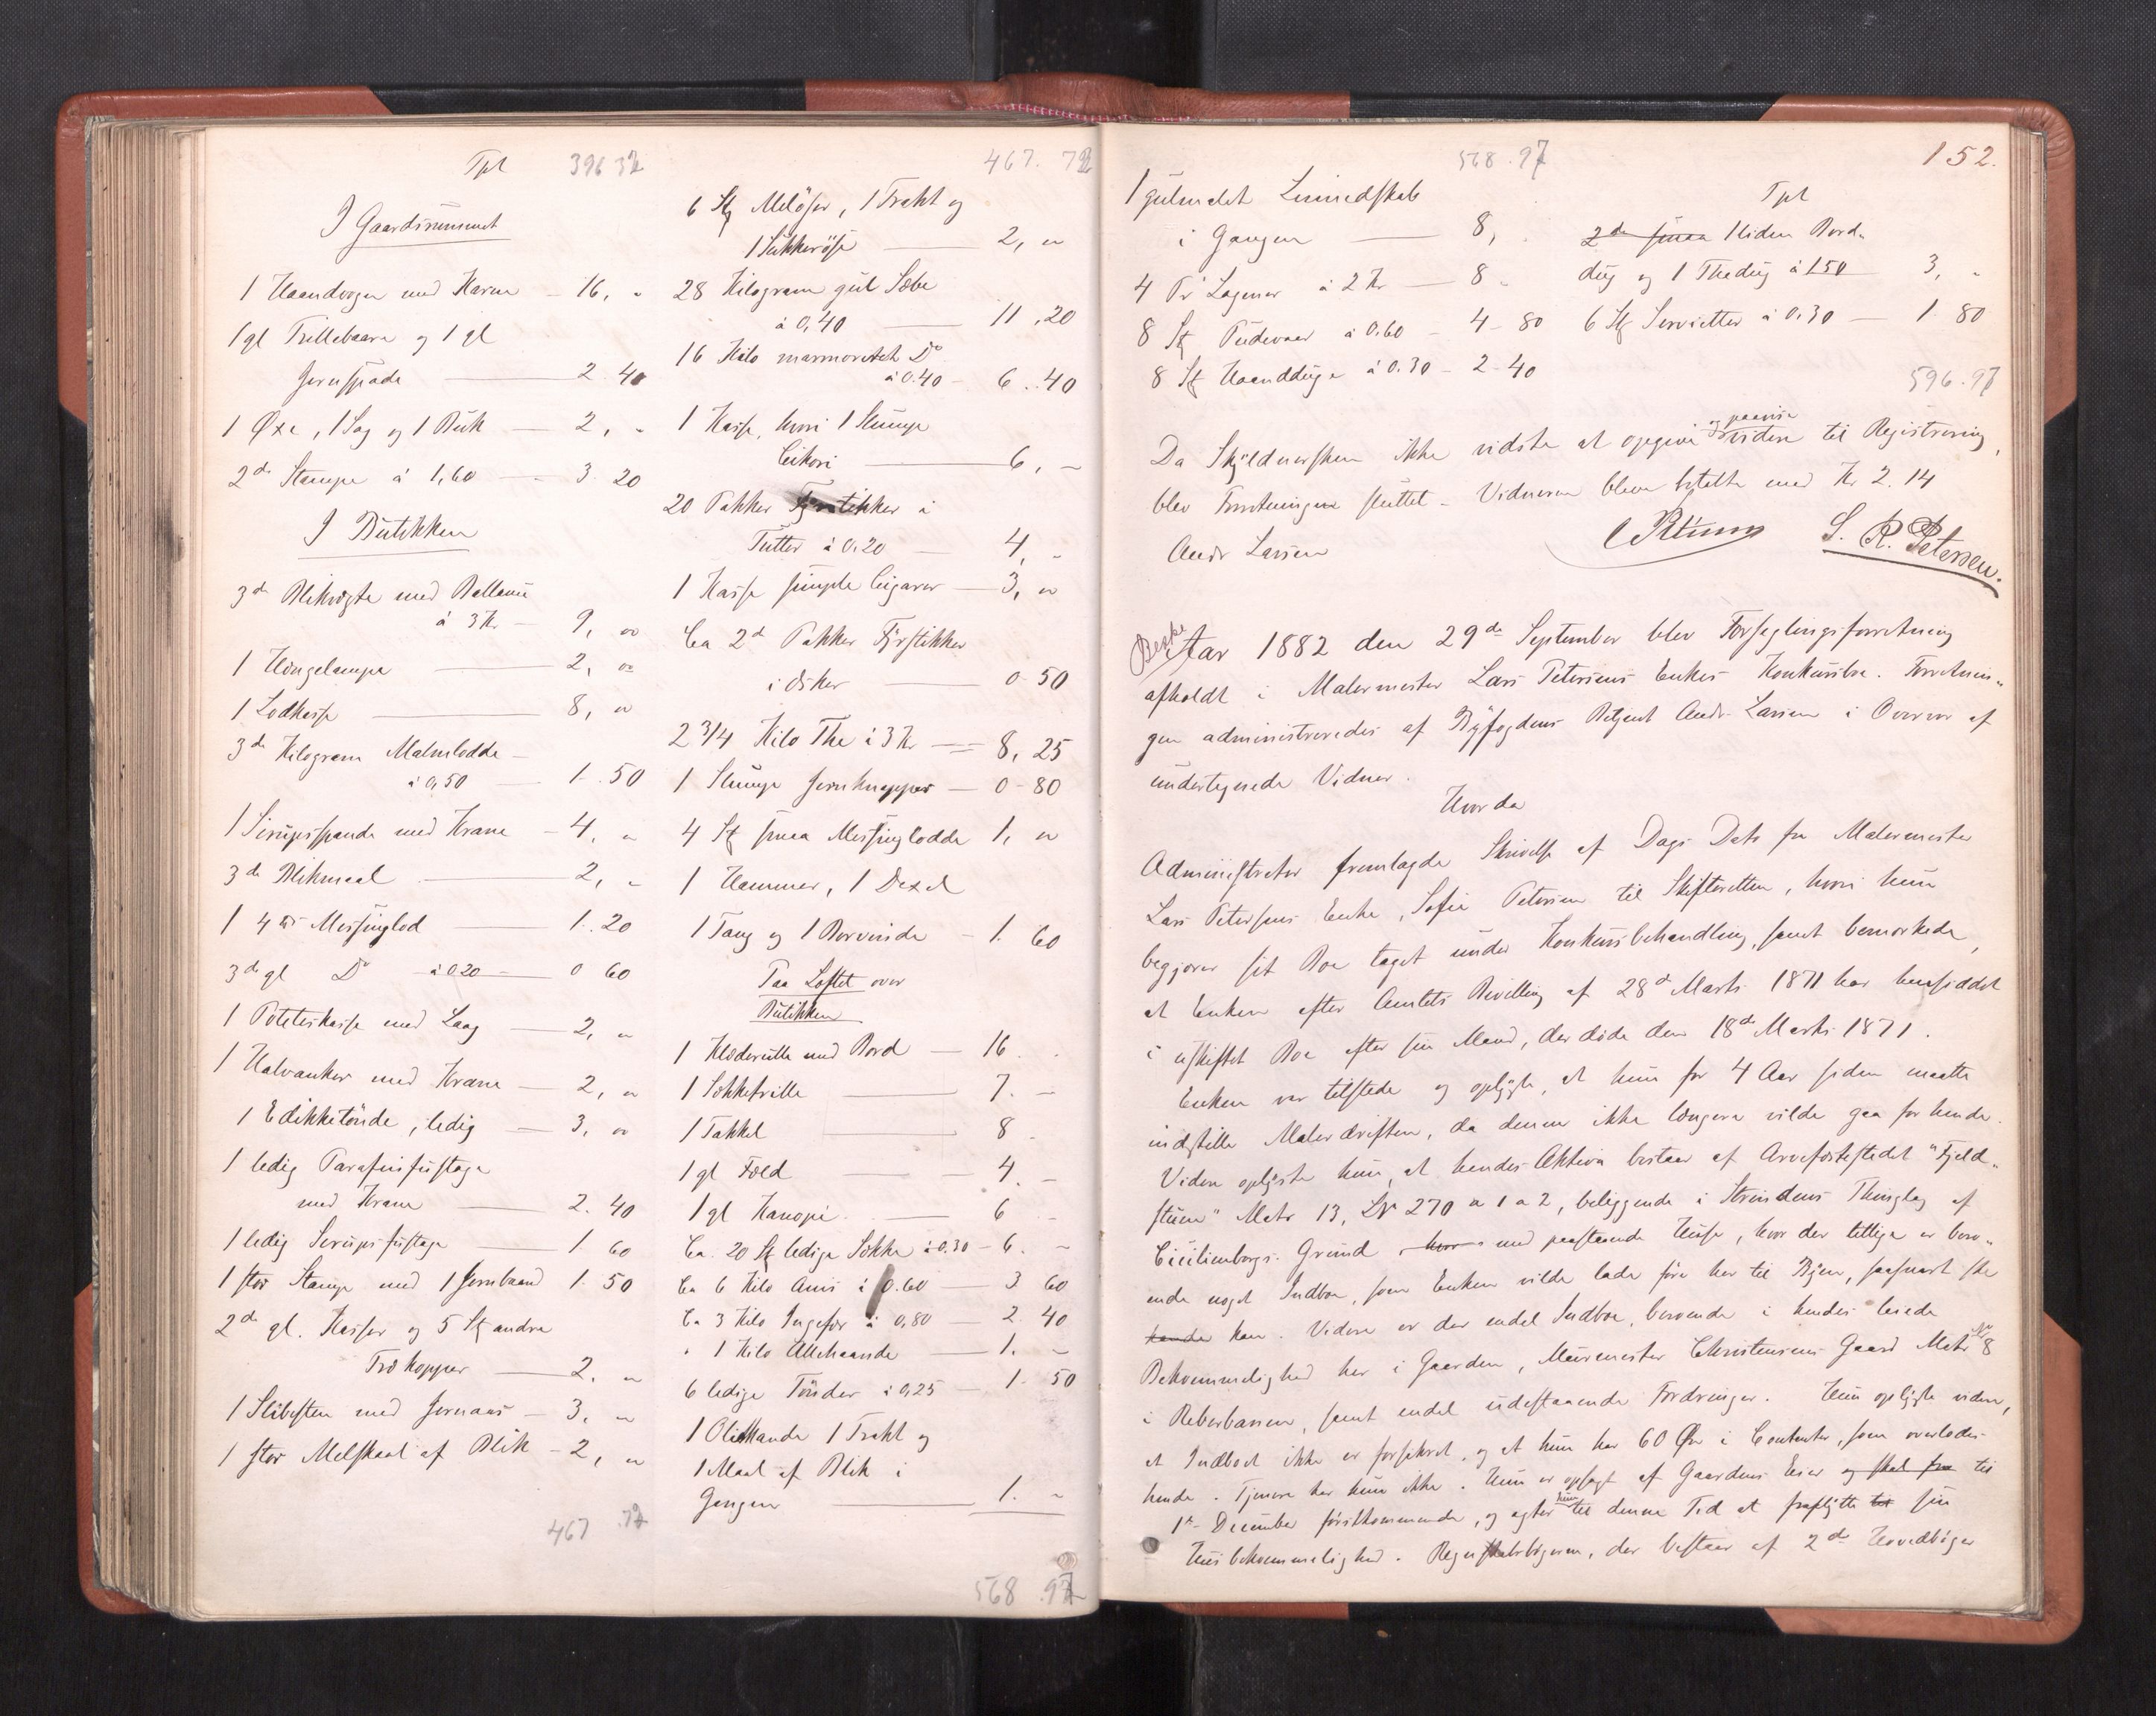 Tpt 396 32
I Gaardsrummet
1 Haandvogn med Karm — 16, "
1 gl Trillebaare og 1 gl
Jernspade — 2 40
1 Øxe, 1 Sag og 1 Buk — 2, "
2de Stampe à 1,60 — 3 20
I Butikken
3de Blikvægte med Ballance
à 3 Kr — 9, "
1 Hængelampe — 2, "
1 Lodkasse — 8, "
3de Kilogram Malmlodde
à 0,50 — 1. 50
1 Sirupsspande med Krane — 4, "
3de Blikmaal — 2, "
1 4 Messinglod — 1. 20
3de gl Do à 0.20 — 0 60
1 Poteteskasse med Laag — 2, "
1 Halvanker med Krane — 2, "
1 Edikketønde, ledig — 3, "
1 ledig Parafinfustage
med Krane — 2. 40
1 ledig Sirupsfustage — 1 60
1 stor Stampe med 1 Jernbaand 1. 50
2de gl. Kasser og 5 St andre
Trækopper — 2. "
1 Slibesten med Jernaas — 3, "
1 stor Melskaal af Blik — 2, "
467 72
467. 72
6 St Meløser, 1 Trakt og
1 Sukkerøse — 2, "
28 Kilogram gul Sæbe
à 0,40 — 11,20
16 Kilo marmoreret Do
à 0.40 — 6. 40
1 Kasse, hvori 1 Slump
Cikori — 6, -
20 Pakker Fyrstikker i
Tutter à 0.20 — 4, -
1 Kasse simple Cigarer — 3, "
Ca 2d Pakker Fyrstikker
i Æsker — 0 50
2 3/4 Kilo The à 3 Kr — 8, 25
1 Slump Jernknapper — 0-80
4 St smaa Messinglodde 1, "
1 Hammer, 1 Dexel
1 Tang og 1 Borvinde — 1. 60
Paa Loftet over
Butikken
1 Klæderulle med Bord — 16
1 Sækketrille — 7. -
1 Takkel — 8
1 gl Fæld — 4. -
1 gl Kanape — 6
Ca. 20 St ledige Sække à 0.30 — 6. -
Ca 6 Kilo Anis à 0.60 — 3 60
Ca 3 Kilo Ingefær à 0,80 — 2 40
" 1 Kilo Allehaande — 1. -
6 ledige Tønder à 0,25 — 1. 50
1 Oliekande 1 Trakt og
1 Maal af Blik i
Gangen — 1. -
568 .97
568.97
152.
1 gulmalet Linnedskab
i Gangen — 8,
4 Pr Lagener à 2 Kr — 8 "
8 St Pudevaar à 0.60 — 4- 80
8 St Haandduge à 0.30 — 2-40
Tpt
2de smaa 1 liden Bord-
dug og 1 Thedug à 1.50 — 3, -
6 St Servietter à 0.30 — 1 80
596.97
Da Skyldnersken ikke vidste at opgive og paavise videre til Registrering,
blev Forretningen sluttet - Vidnerne bleve betalte med Kr 2.14
Andr Larsen
S. R. Petersen.
Besk
Aar 1882 den 29de September blev Forseglingsforretning
afholdt i Malermester Lars Petersens Enkes Konkursbo. Forretnin-
gen administreredes af Byfogdens Betjent Andr. Larsen i Overvær af
undertegnede Vidner.
Hvorda
Administrator fremlagde Skrivelse af Dags Dato fra Malermester
Lars Petersens Enke, Sofie Petersen til Skifteretten, hvori hun
begjærer sit Boe taget under Konkursbehandling, samt bemærkede,
at Enken efter Amtets Bevilling af 28de Marts 1871 har hensiddet
i uskiftet Boe efter sin Mand, der døde den 18de Marts 1871.
Enken var tilstede og oplyste, at hun for 4 Aar siden maatte
indstille Malerdriften, da denne ikke længere vilde gaa for hende.
Videre oplyste hun, at hendes Aktiva bestaar af Arvefæstestedet "Fjeld-
stuen" Matr 13, LNr 270 a 1 a 2, beliggende i Strindens Thinglag af
Cicilienborgs Grund hvor med paastaaende Huse, hvor der tillige er bero-
ende noget Indboe, som Enken vilde lade føre her til Byen, saasnart ske
kunde kan. Videre er der endel Indboe, beroende i hendes leiede
Bekvemmelighed her i Gaarden, Murmester Christensens Gaard Matr No 8
i Reberbanen, samt endel udestaaende Fordringer. Hun oplyste videre,
at Indboet ikke er forsikret, og at hun har 60 Øre i Contanter, som overlodes
hende. Tjenere har hun ikke. Hun er opsagt af Gaardens Eier og skal fra til
1st December førstkommende, og agter hun til denne Tid at fraflytte tit sin
Husbekvemmelighed. Regnskabsbøgerne, der bestaar af 2de Hovedbøger